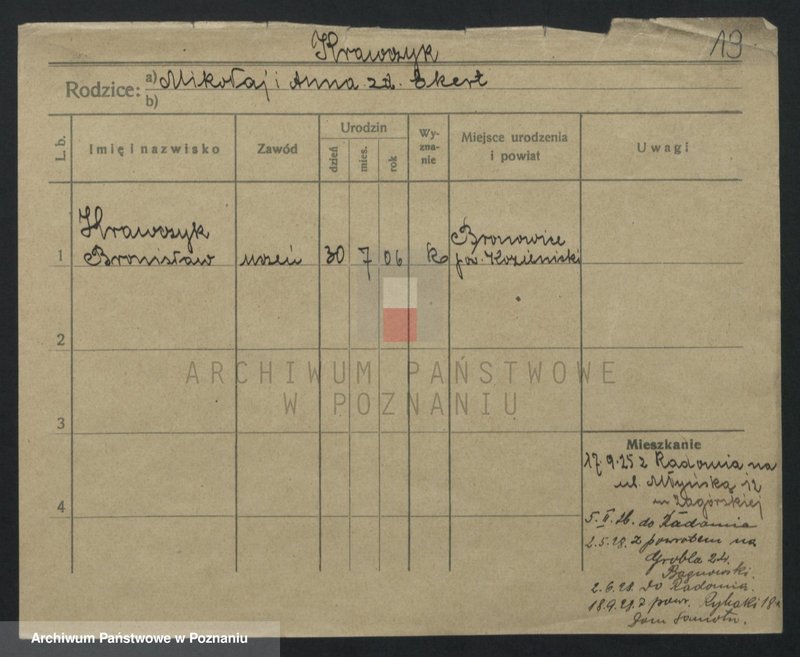 Krawczyk
13
Rodzice: a) Mikołaj i Anna zd. Ekert
b)
L. b.
Imię i nazwisko
Zawód
Urodzin
dzień
mies.
rok
Wy-
zna-
nie
Miejsce urodzenia
i powiat
Uwagi
1
Krawczyk
Bronisław
uczeń
30
7
06
k
Bronowice
pow. Kozieniski
2
3
4
ARCHIWUM PAŃSTWOWE
W POZNANIU
Mieszkanie
17.9.25 z Radomia na
ul. Młyńską 12
Zagórskiej
do Radomia
2.5.28. z powrotem na
Grobla
2.6.28. do Radomia
18.9.28 z powr. Rybaki
Archiwum Państwowe w Poznaniu